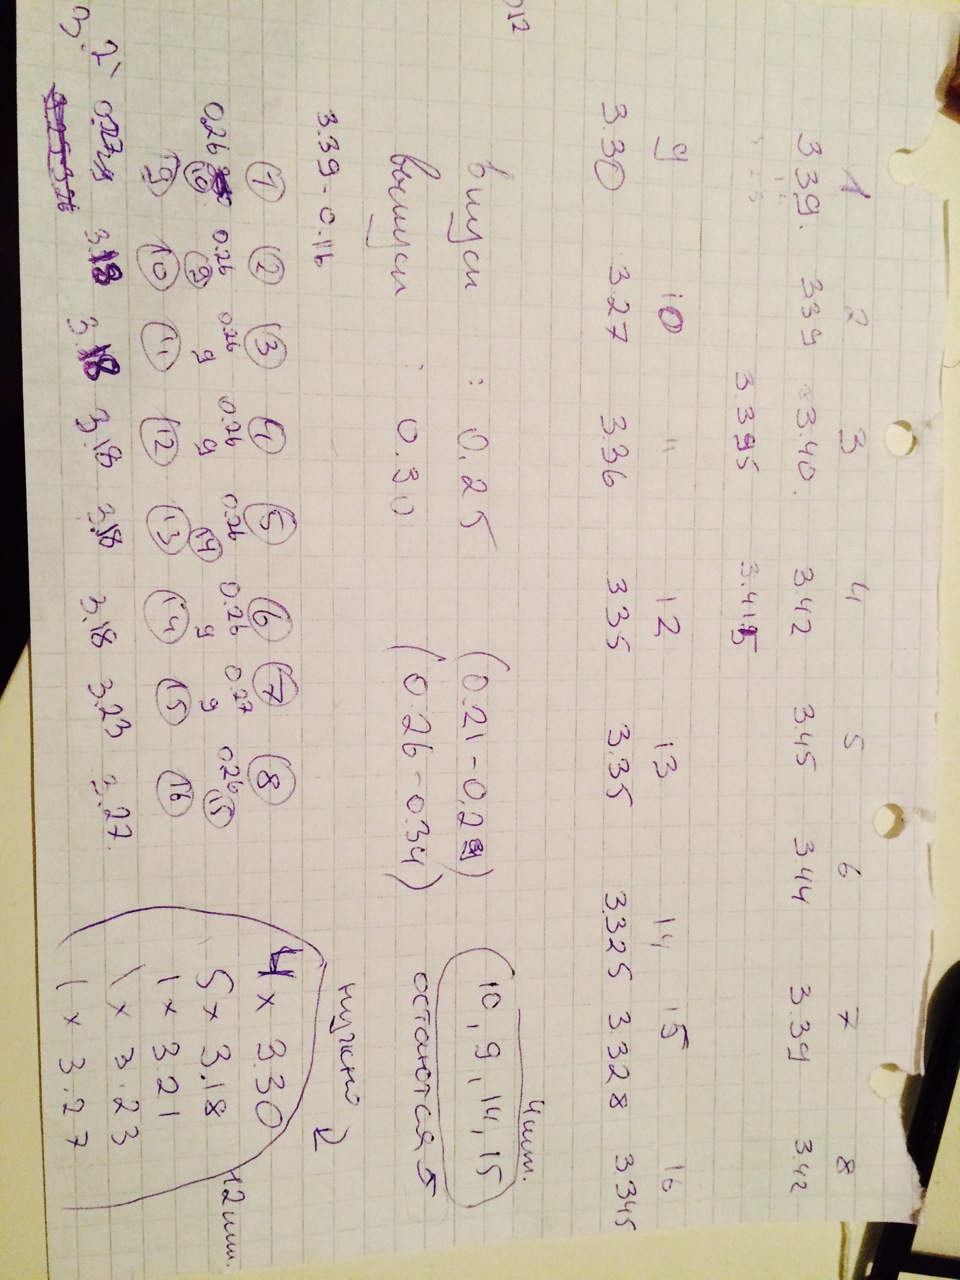 1 2 3 4 5 6 7 8
3.39. 3.39 3.40. 3.42 3.45 3.44 3.39 3.42
3.395 3.415
9 10 11 12 13 14 15 16
3.30 3.27 3.36 3.35 3.35 3.325 3.328 3.345
4 шт.
впуск : 0.25 (0.21-0.29) 10, 9, 14, 15
выпуск : 0.30 (0.26-0.34) остаются
3.39-0.16 нужно
1 2 3 4 5 6 7 8 4 x 3.30
0.26 0.26 0.26 0.26 0.26 0.26 0.27 0.26 12 шт.
10 9 9 9 14 9 9 15 5 x 3.18
9 10 11 12 13 14 15 16 1 x 3.21
3.18 3.18 3.18 3.18 3.18 3.23 3.27. 1 x 3.23
3.21 1 x 3.27